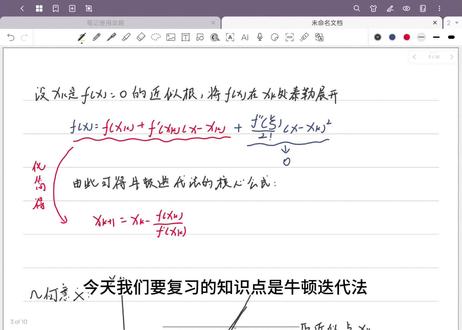 笔记使用攻略
未命名文档
设 xₖ是 f(x)=0 的近似根,将 f(x)在 xₖ处泰勒展开
f(x)=f(xₖ)+f'(xₖ)(x-xₖ)+f''(ξ)/2! (x-xₖ)²
0
化简得
由此可得牛顿迭代法的核心公式:
xₖ₊₁=xₖ-f(xₖ)/f'(xₖ)
几何意义:
今天我们要复习的知识点是牛顿迭代法